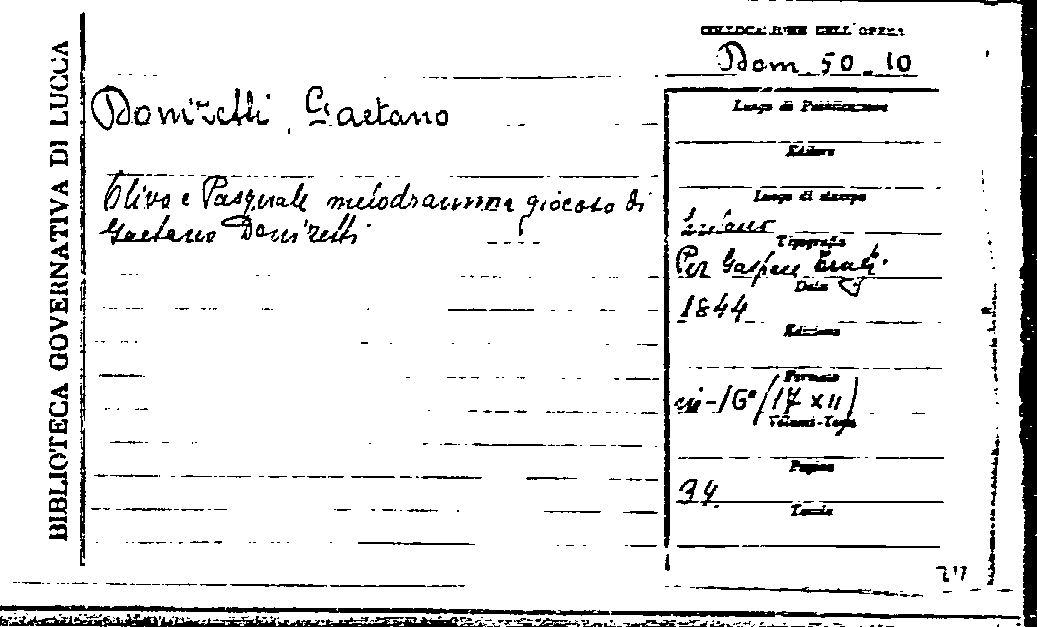 BIBLIOTECA GOVERNATIVA DI LUCCA
COLLOCAZIONE DELL'OPERA
Dom. 50.10
Donizetti, Gaetano
Olivo e Pasquale melodramma giocoso di
Gaetano Donizetti
Luogo di Pubblicazione
Editore
Luogo di stampa
Tipografia
Per Gaspare
Data
1844
Edizione
Formato
in-16° (17 x 11)
Volumi-Tomi
Pagine
34
Tavole